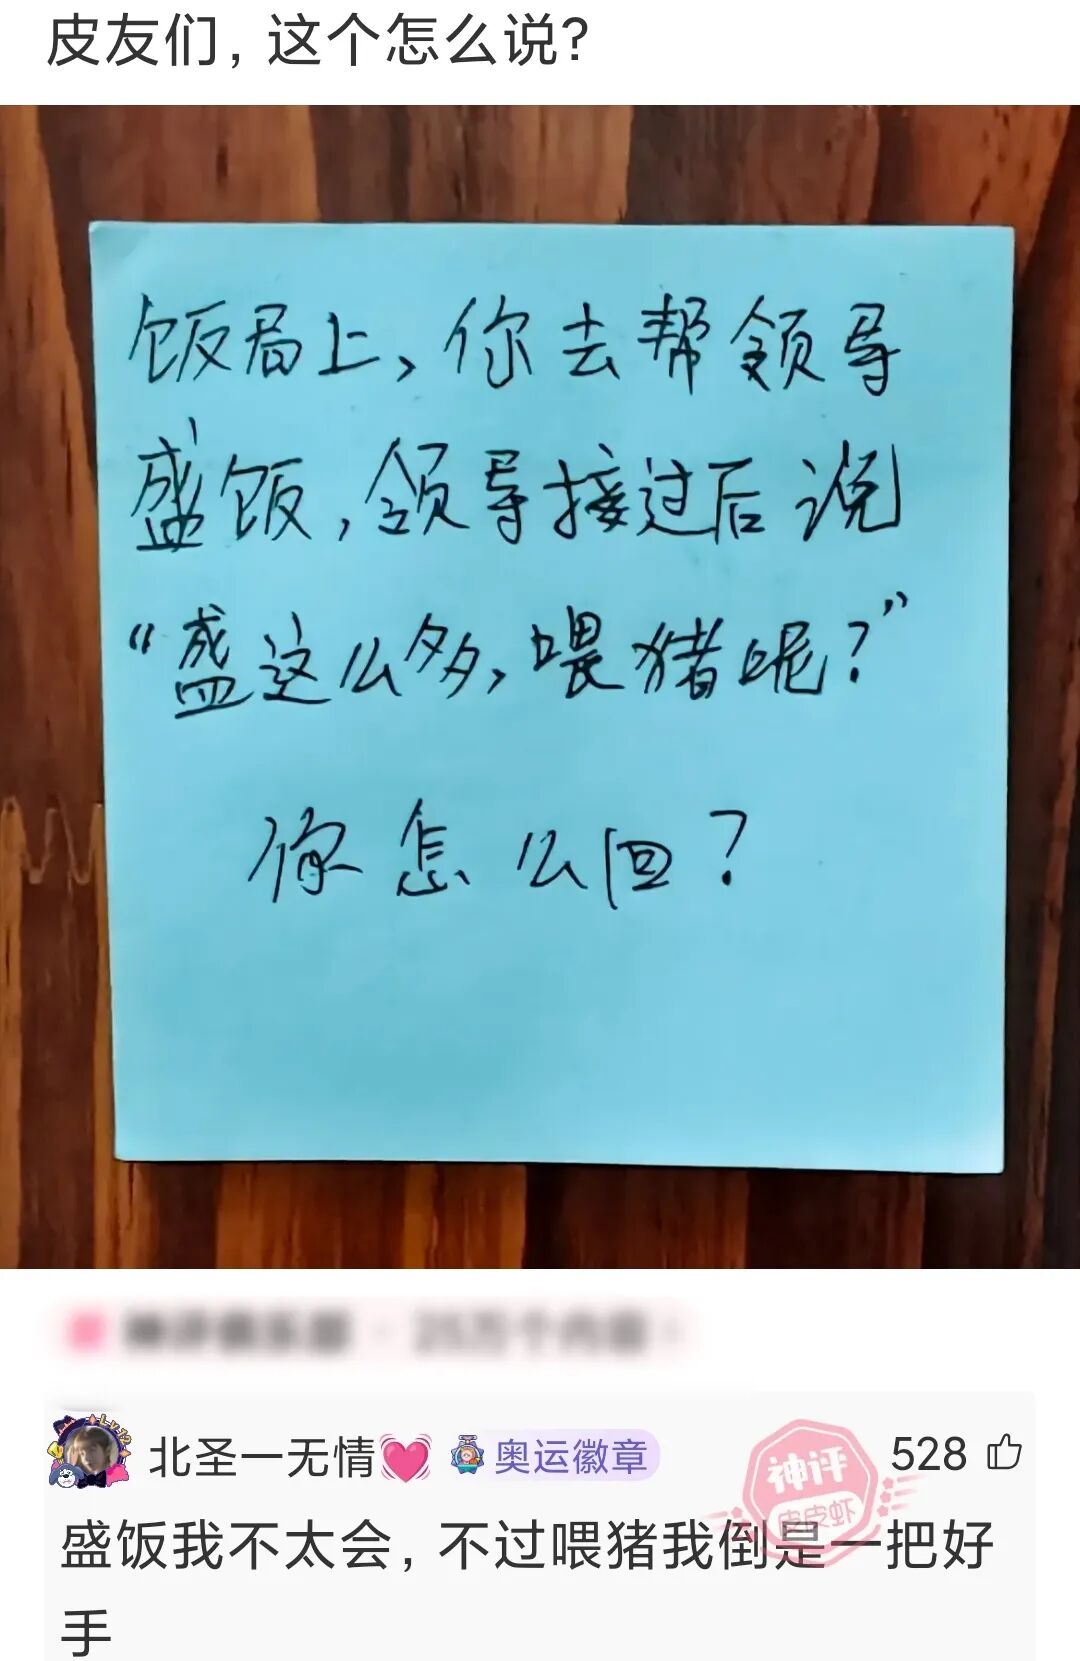 皮友们，这个怎么说？
饭局上，你去帮领导
盛饭，领导接过后说
“盛这么多，喂猪呢？”
你怎么回？
北圣一无情💓 奥运徽章 528
神评
皮皮虾
盛饭我不太会，不过喂猪我倒是一把好
手